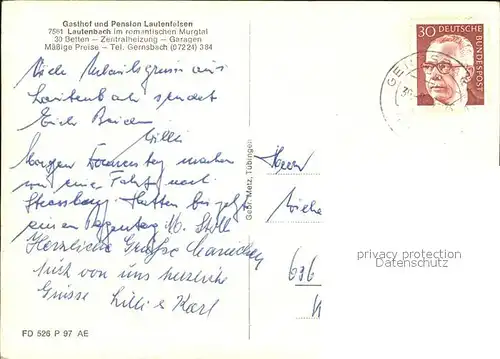 Gasthof und Pension Lautenfelsen
7561 Lautenbach im romantischen Murgtal
30 Betten – Zentralheizung – Garagen
Mäßige Preise – Tel. Gernsbach (07224) 384
Viele Urlaubsgrüsse aus
Lautenbach sendet
Euch Beiden
Willi
Morgen Donnerstag machen
wir eine Fahrt nach
Strassburg. Hatten bis jetzt
einen Regentag M. Stoll
Herzliche Grüße
Auch von uns herzliche
Grüsse Lilli & Karl
FD 526 P 97 AE
Gebr. Metz, Tübingen
30 DEUTSCHE BUNDESPOST
GE
Herrn
636
privacy protection
Datenschutz